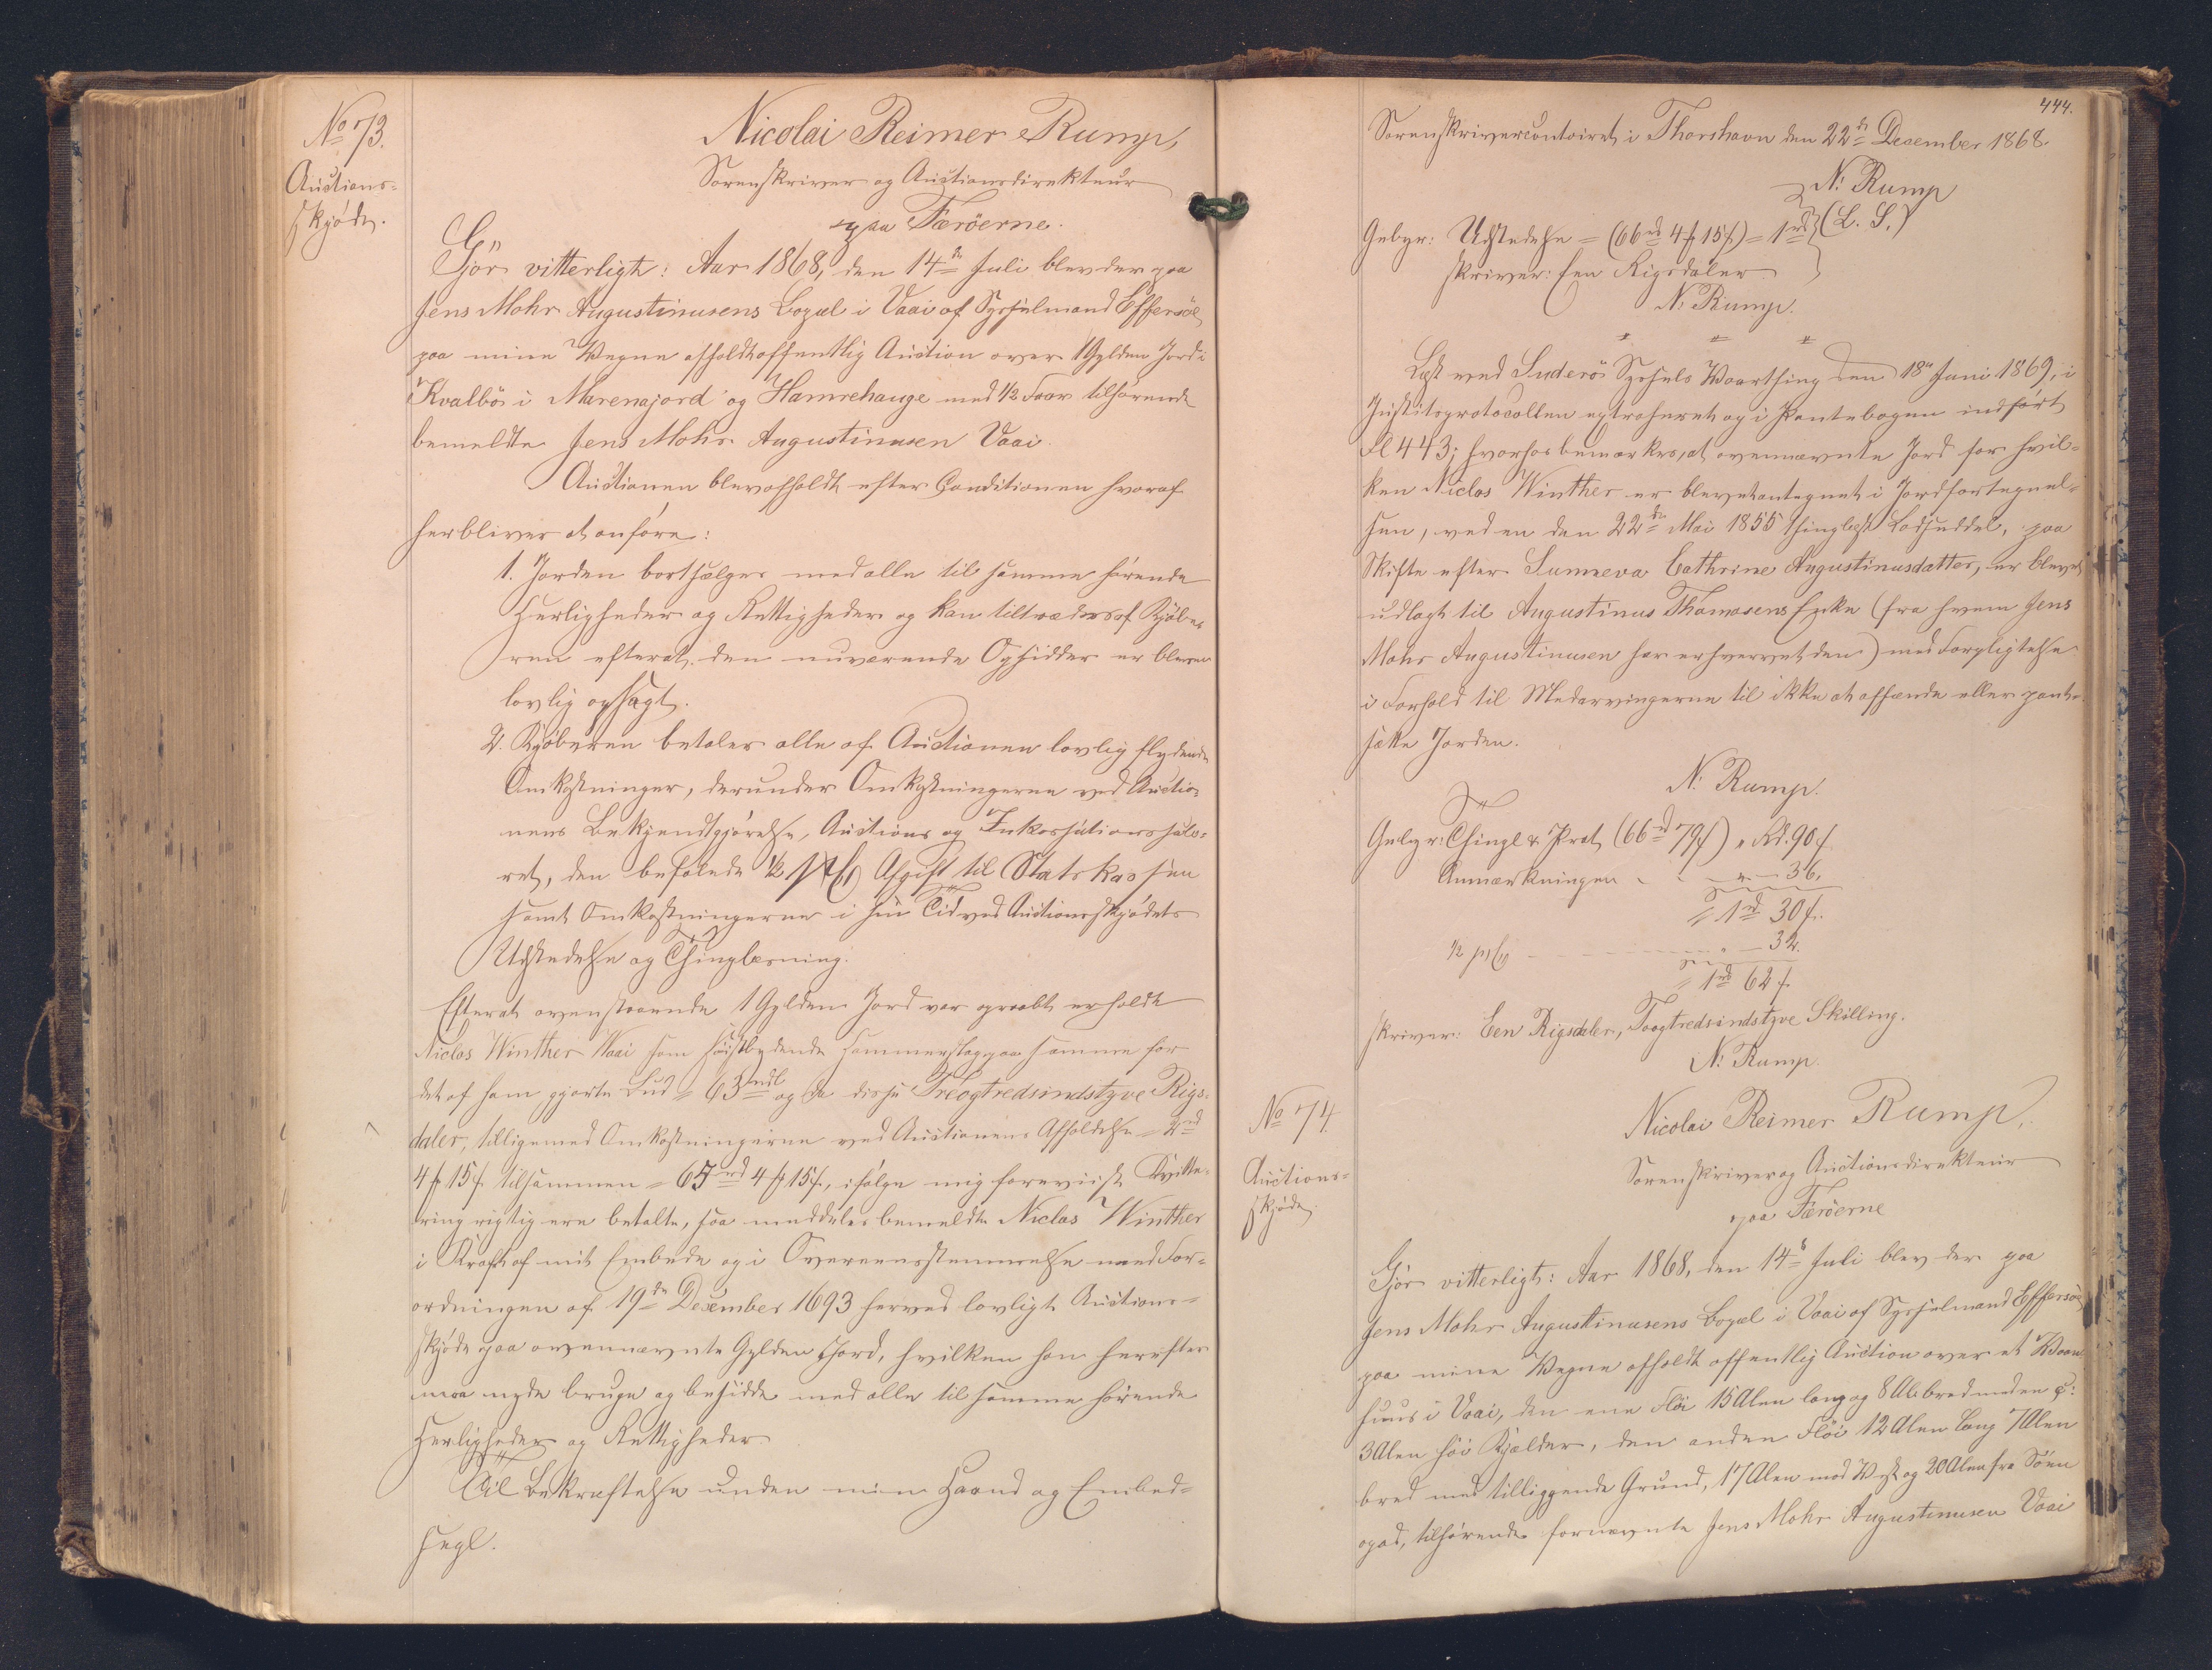 No 73.
Auctions-
skjøde.
Nicolai Reimer Rump,
Sorenskriver og Auctionsdirekteur
paa Færöerne.
Gjör vitterligt: Aar 1868, den 14de Juli blev der paa
Jens Mohr Augustinusens Bopæl i Vaai af Sysselmand Effersöe
paa mine Vegne afholdt offentlig Auction over 1 Gylden Jord i
Kvalbö i Marenajord og Hamrehauge med 1/2 Foer tilhørende
bemeldte Jens Mohr Augustinusen Vaai.
Auctionen blev afholdt efter Conditionen hvoraf
her bliver at anføre:
1. Jorden bortsælges med alle til samme hørende
Herligheder og Rettigheder og kan tiltrædes af Kjøbe-
ren efterat den nuværende Opsidder er bleven
lovlig opsagt.
2. Kjøberen betaler alle af Auctionen lovlig flydende
Omkostninger, derunder Omkostningerne ved Auctio-
nens Bekjendtgjørelse, Auctions og Inkassationssala-
ret, den befalede 1/2 pCt Afgift til Statskassen
samt Omkostningerne i sin Tid ved Auctionsskjødets
Udstedelse og Thinglæsning.
Efterat ovenstaaende 1 Gylden Jord var opraabt erholdt
Niclas Winther Vaai som høistbydende Hammerslag paa samme for
det af ham gjorte Bud = 63 rdl og da disse Treogtredsindstyve Rigs-
daler, tilligemed Omkostningerne ved Auctionens Afholdelse = 2 rd
4 ß 15 ß tilsammen = 65 rd 4 ß 15 ß, ifølge mig forevist Kvitte-
ring rigtig ere betalte, saa meddeles bemeldte Niclas Winther
i Kraft af mit Embede og i Overeensstemmelse med For-
ordningen af 19de December 1693 herved lovligt Auctions-
skjøde paa ovennævnte Gylden Jord, hvilken han herefter
maa nyde bruge og besidde med alle til samme hørende
Herligheder og Rettigheder
Til Bekræftelse under min Haand og Embed-
segl.
444.
Sorenskrivercontoiret i Thorshavn den 22de December 1868.
N. Rump
(L. S.)
Gebyr: Udstedelse = (66 rd 4 ß 15 ß) = 1 rd
skriver: Een Rigsdaler
N. Rump.
Læst ved Suderö Syssels Vaarthing den 18de Juni 1869, i
Justitsprotocollen extraheret og i Pantebogen indført
Fl 443; hvorhos bemærkes, at ovennævnte Jord for hvil-
ken Niclas Winther er blevet antegnet i Jordfortegnel-
sen, ved en den 22de Mai 1855 thinglæst Lodseddel, paa
Skifte efter Sunneva Cathrine Augustinusdatter, er blevet
udlagt til Augustinus Thomasens Enke (fra hvem Jens
Mohr Augustinusen har erhvervet den) med Forpligtelse
i Forhold til Medarvingerne til ikke at afhænde eller pant-
sætte Jorden.
N. Rump.
Gebyr: Thingl. & Prot. (66 rd 79 ß) " Rd. 90 ß
Anmærkningen - " - 36.
= 1 rd 30 ß.
1/2 pCt - " - 32.
= 1 rd 62 ß.
skriver: Een Rigsdaler, Toogtredsindstyve Skilling.
N. Rump.
No 74.
Auctions-
skjøde.
Nicolai Reimer Rump,
Sorenskriver og Auctionsdirekteur
paa Færöerne
Gjör vitterligt: Aar 1868, den 14de Juli blev der paa
Jens Mohr Augustinusens Bopæl i Vaai af Sysselmand Effersöe
paa mine Vegne afholdt offentlig Auction over et Vaan-
huus i Vaai, den ene Flöi 15 Alen lang og 8 Al. bred med en
3 Alen høi Kjælder, den anden Flöi 12 Alen lang 7 Alen
bred med tilliggende Grund, 17 Alen mod Vest og 20 Alen fra Söen
opad, tilhørende fornævnte Jens Mohr Augustinusen Vaai